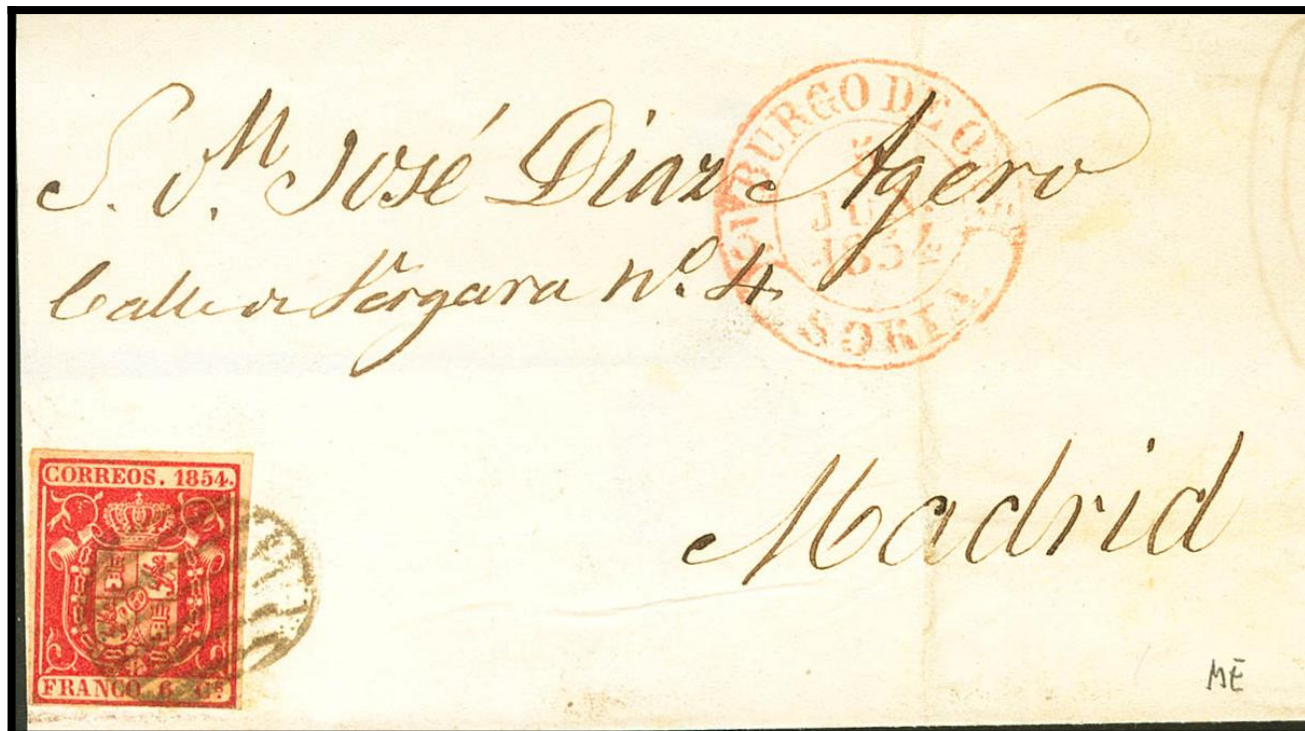 S. D. M José Diaz Agero
Calle de Vergara Nº. 4.
Madrid
BURGO DE O
JU
1854
SORIA
CORREOS. 1854.
FRANCO. 6 Cs
ME